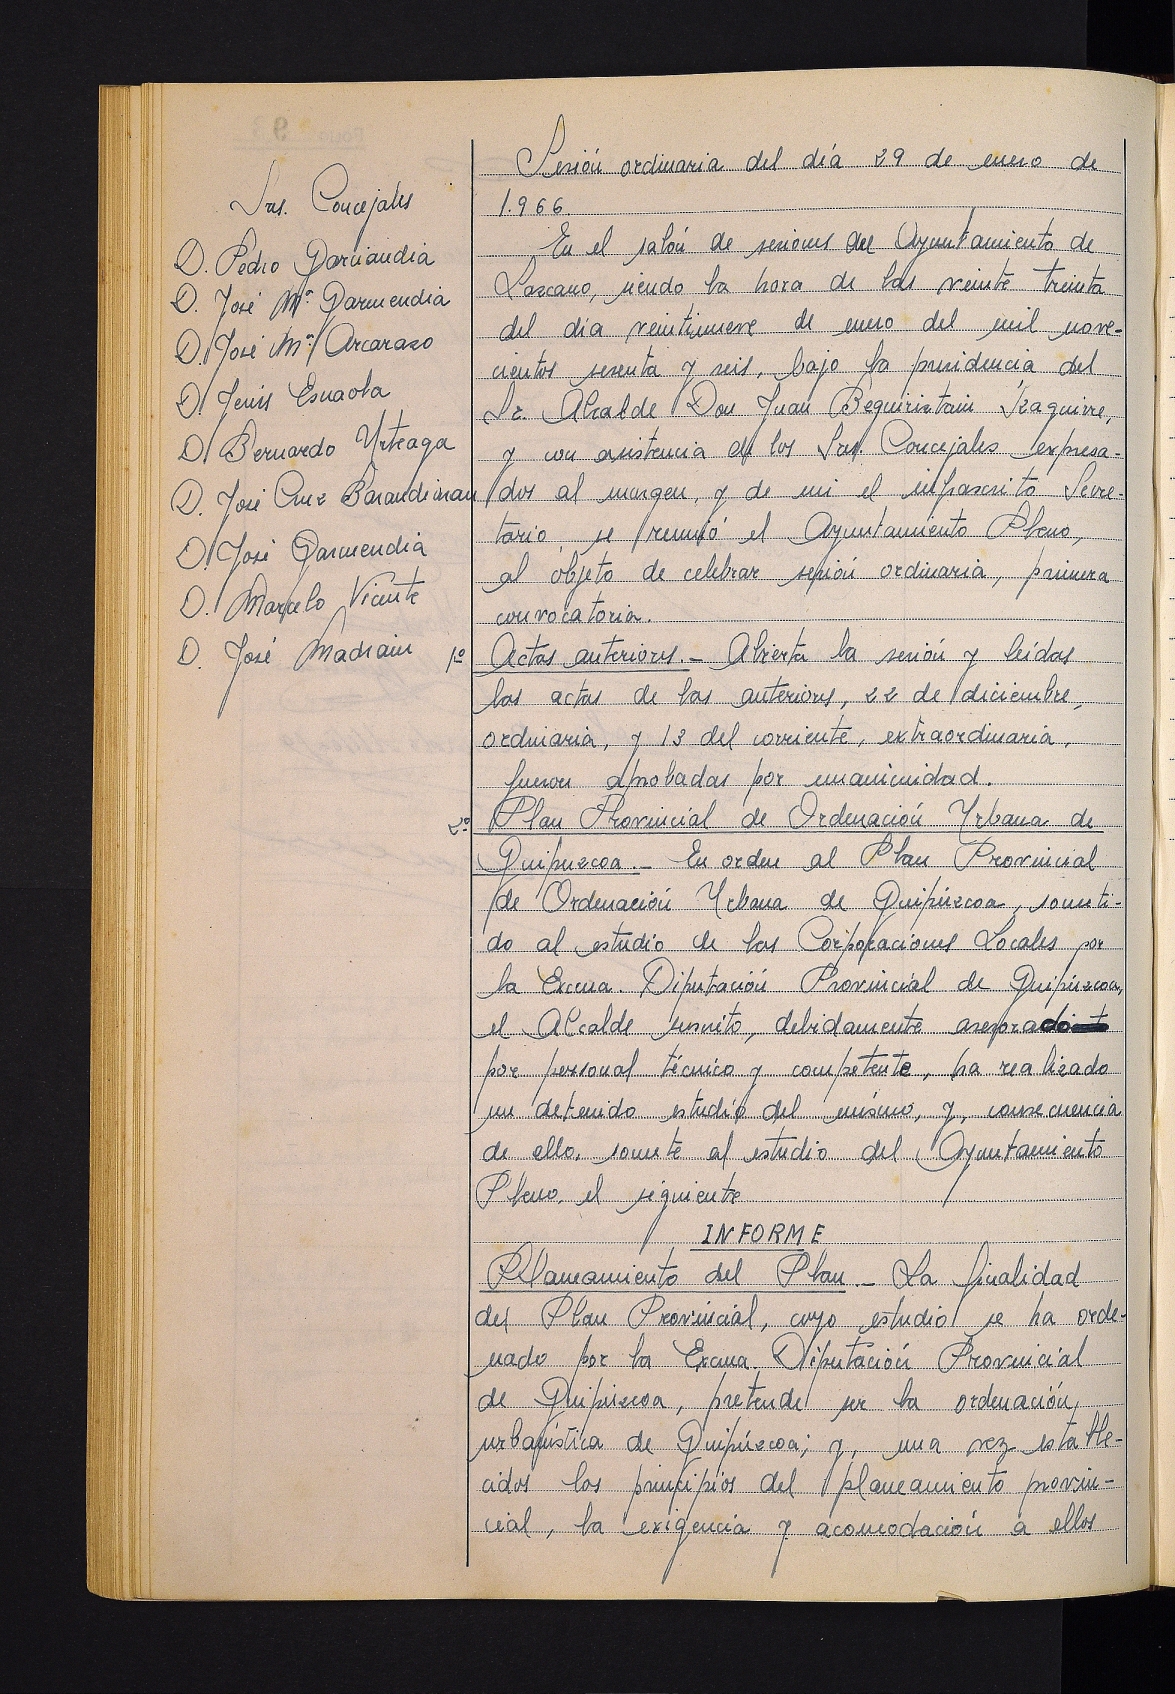 Srs. Concejales
D. Pedro Garciandia
D. José Mª Garmendia
D. José Mª Arcarazo
D. Jesús Esnaola
D. Bernardo Urteaga
D. José Cruz Barandiaran
D. José Garmendia
D. Marcelo Vicente
D. José Madrain
Sesión ordinaria del día 29 de enero de
1.966.
En el salón de sesiones del Ayuntamiento de
Lazcano, siendo la hora de las veinte treinta
del día veintinueve de enero del mil nove-
cientos sesenta y seis, bajo la presidencia del
Sr. Alcalde Don Juan Beguiristain Izaguirre,
y con asistencia de los Srs. Concejales expresa-
dos al margen, y de mi el infrascrito Secre-
tario, se reunió el Ayuntamiento Pleno,
al objeto de celebrar sesión ordinaria, primera
convocatoria.
1º Actas anteriores.- Abierta la sesión y leidas
las actas de las anteriores, 22 de diciembre,
ordinaria, y 13 del corriente, extraordinaria,
fueron aprobadas por unanimidad.
2º Plan Provincial de Ordenación Urbana de
Guipuzcoa.- En orden al Plan Provincial
de Ordenación Urbana de Guipúzcoa, someti-
do al estudio de las Corporaciones Locales por
la Excma. Diputación Provincial de Guipúzcoa,
el Alcalde suscrito, debidamente asesorado
por personal técnico y competente, ha realizado
un detenido estudio del mismo, y, consecuencia
de ello, somete al estudio del Ayuntamiento
Pleno, el siguiente
INFORME
Planeamiento del Plan.- La finalidad
del Plan Provincial, cuyo estudio se ha orde-
nado por la Excma. Diputación Provincial
de Guipúzcoa, pretende ser la ordenación,
urbanística de Guipúzcoa; y, una vez estable-
cidos los principios del planeamiento provin-
cial, la exigencia y acomodación a ellos